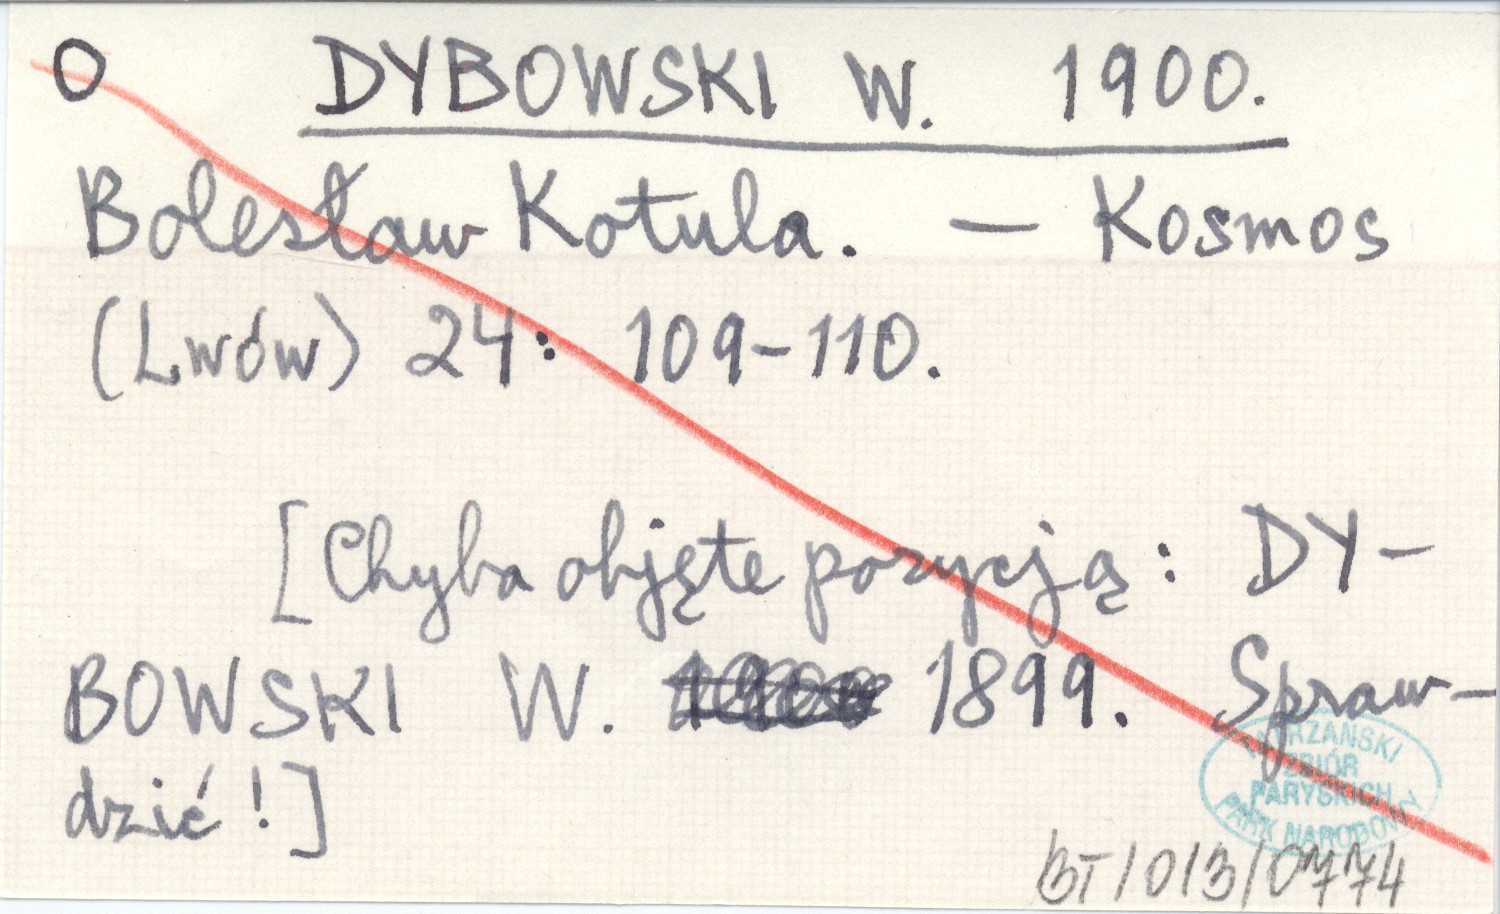 O DYBOWSKI W. 1900.
Bolesław Kotula. — Kosmos
(Lwów) 24: 109-110.
[Chyba objęte pozycją: DY-
BOWSKI W. 1899. Spraw-
dzić!]
TATRZAŃSKI
ZBIÓR
PARYSKICH
PARK NARODOWY
BT/013/0774